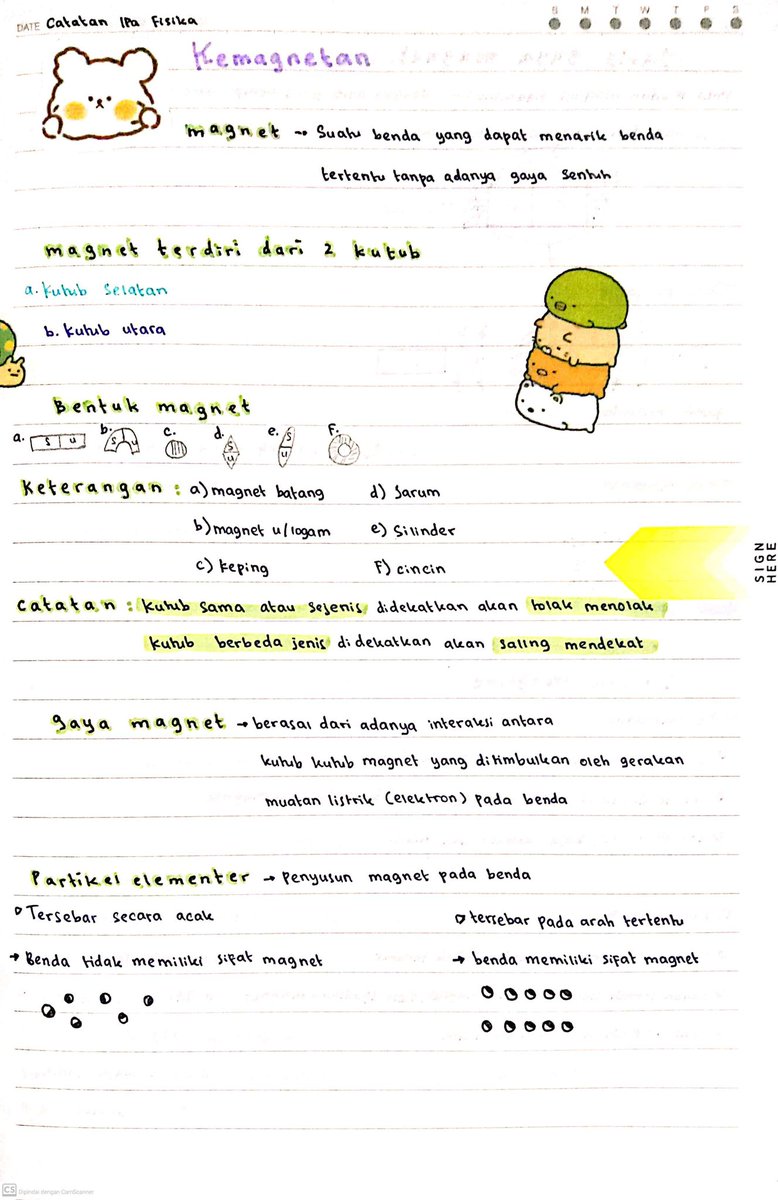 DATE Catatan IPA Fisika
S M T W T F S
Kemagnetan
magnet → Suatu benda yang dapat menarik benda
tertentu tanpa adanya gaya sentuh
magnet terdiri dari 2 kutub
a. Kutub Selatan
b. Kutub utara
Bentuk magnet
a. S U b. S U c. d. S U e. S U F.
Keterangan : a) magnet batang d) Jarum
b) magnet u/logam e) Silinder
c) keping F) cincin
SIGN HERE
Catatan : Kutub sama atau sejenis didekatkan akan tolak menolak
kutub berbeda jenis didekatkan akan saling mendekat
gaya magnet → berasal dari adanya interaksi antara
kutub kutub magnet yang ditimbulkan oleh gerakan
muatan listrik (elektron) pada benda
Partikel elementer → penyusun magnet pada benda
Tersebar secara acak tersebar pada arah tertentu
→ Benda tidak memiliki sifat magnet → benda memiliki sifat magnet
CS Dipindai dengan CamScanner